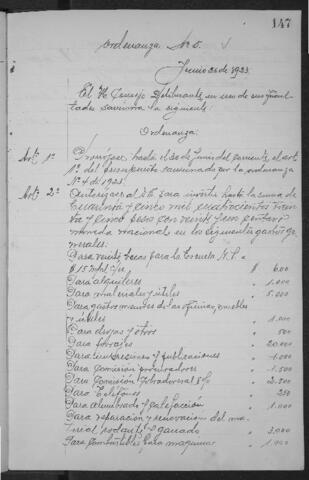 147
Ordenanza No 5.
Junio 26 de 1923.
El H. Concejo Deliberante en uso de sus facul-
tades sanciona la siguiente:
Ordenanza:
Art. 1º Prorógase hasta el 30 de Junio del corriente el art.
1º del presupuesto sancionado por la ordenanza
Nº 4 de 1923.
Art. 2º Autorízase al D. E. para invertir hasta la suma de
Cuarenta y cinco mil cuatrocientos trein-
ta y cinco pesos con veinte y un centavos
moneda nacional en los siguientes gastos ge-
nerales:
Para veinte becas para la Escuela N. P. a
$ 15 m/n c/u $ 600
Para alquileres " 1.000
Para materiales y útiles " 5.000
Para gastos menores de las oficinas, muebles
y útiles " 1.000
Para drogas y otros " 500
Para forrajes " 20.000
Para impresiones y publicaciones " 1.000
Para comisión procuradores " 1.500
Para comisión cobradores al 8% " 2.500
Para Teléfonos " 250
Para alumbrado y calefacción " 1.000
Para reparación y renovación del ma-
terial rodante y ganado " 3.000
Para combustibles para maquinas "